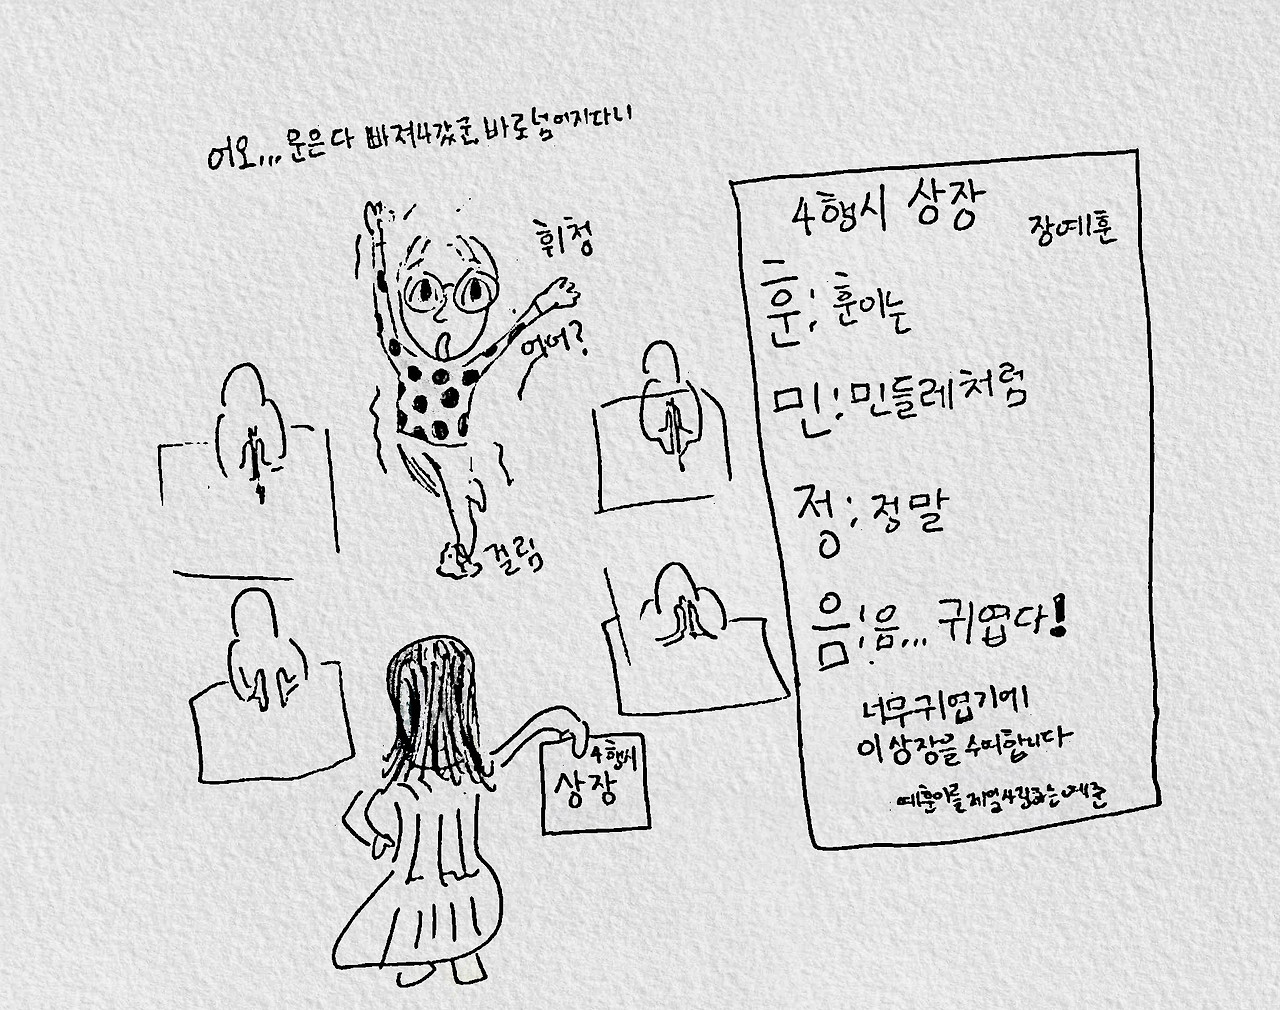 어오... 문은 다 빠져4갔군, 바로 넘어지다니
휘청
어어?
걸림
4행시
상장
4행시 상장
장예훈
훈: 훈이는
민: 민들레처럼
정: 정말
음: 음... 귀엽다!
너무 귀엽기에
이 상장을 수여합니다
예훈이를 제일 사랑하는